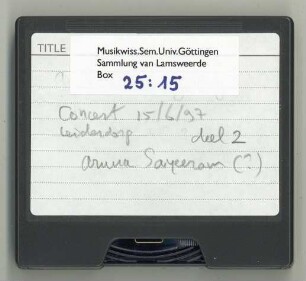 TITLE
Musikwiss.Sem.Univ.Göttingen
Sammlung van Lamsweerde
Box 25:15
Concert 15/6/97
Leiderdorp deel 2
Aruna Sayeeram (?)